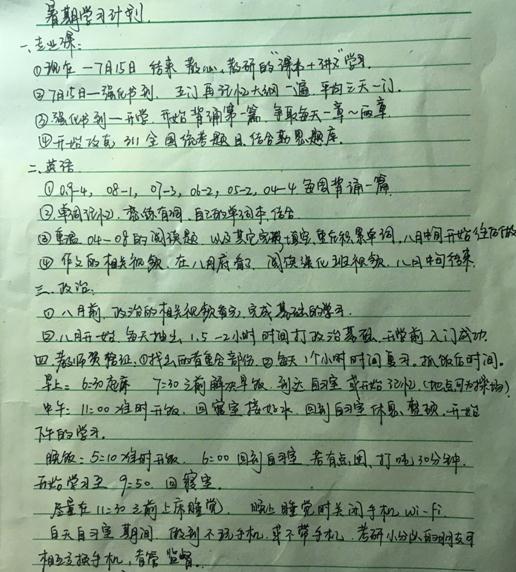 暑期学习计划
一、专业课:
①现在—7月15日 结束 教心、教研的"课本+讲义"学习.
②7月15日—强化书到 五门再记忆大纲一遍 平均三天一门.
③强化书到—开学 开始背诵第一篇 争取每天一章~两章
④开始攻克 311 全国统考题目, 结合勤思题库.
二、英语
①09-4, 08-1, 07-3, 06-2, 05-2, 04-4 每周背诵一篇
②单词记忆 恋练有词, 自己的单词本, 结合
③重温 04-08的阅读题 以及其它完型填空, 重在积累单词, 八月中间开始
④作文的相关视频, 在八月底看, 阅读强化班视频, 八月中旬结束.
三、政治.
①八月前, 政治的相关视频看完, 完成基础的学习.
②八月开始 每天抽出 1.5-2小时 时间打政治基础, 开学前入门成功.
四、教师资格证. ①找出两者重合部份 ②每天1个小时时间复习, 抓饭后时间.
早上: 6:30起床 7:30之前解决早饭, 到达自习室 或开始记忆 (地点可为操场)
中午: 11:00准时开饭, 回寝室接好水 回到自习室休息、整顿, 开始
下午的学习.
晚饭: 5:10准时开饭, 6:00回到自习室 若有点困, 打盹30分钟,
开始学习至 9:50. 回寝室.
尽量在11:30之前上床睡觉, 晚上睡觉时关闭手机 Wi-Fi
白天自习室期间, 做到不玩手机, 或不带手机, 考研小分队的朋友可
相互交换手机, 看管 监督.